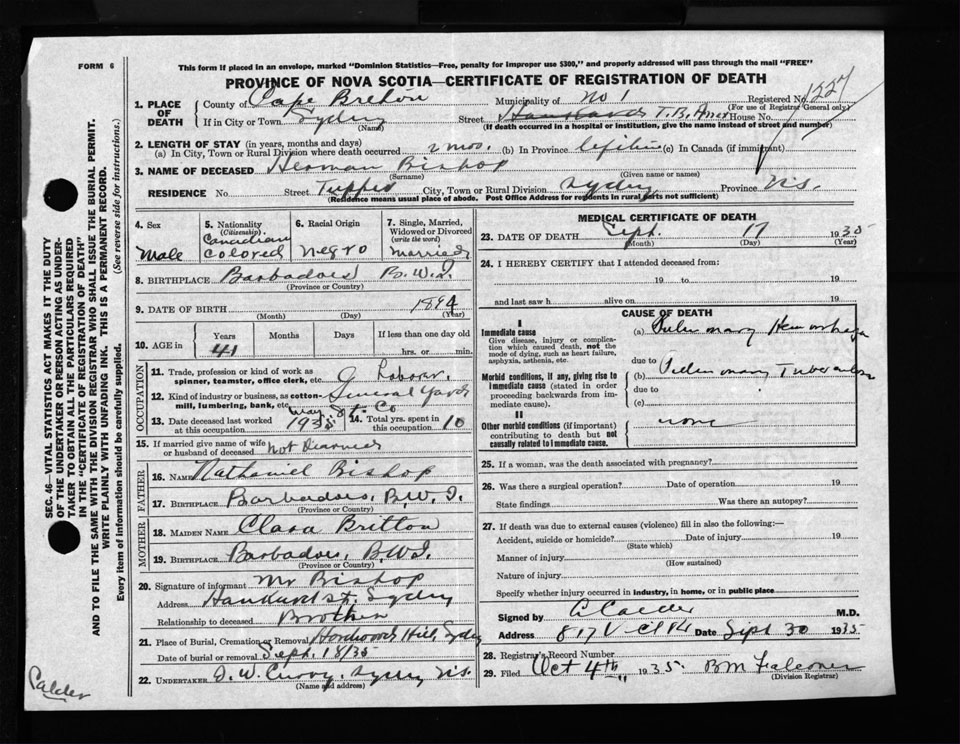 FORM 6
This form if placed in an envelope, marked "Dominion Statistics—Free, penalty for improper use $300," and properly addressed will pass through the mail "FREE"
PROVINCE OF NOVA SCOTIA—CERTIFICATE OF REGISTRATION OF DEATH
1. PLACE OF DEATH
County of Cape Breton Municipality of No 1 Registered No. 1227
(For use of Registrar General only)
If in City or Town Sydney Street T. B. Annex House No.
(Name) (If death occurred in a hospital or institution, give the name instead of street and number)
2. LENGTH OF STAY (in years, months and days)
(a) In City, Town or Rural Division where death occurred 2 mos. (b) In Province lifetime (c) In Canada (if immigrant)
3. NAME OF DECEASED Herman Bishop
(Surname) (Given name or names)
RESIDENCE No Street Tupper City, Town or Rural Division Sydney Province N.S.
(Residence means usual place of abode. Post Office Address for residents in rural parts not sufficient)
4. Sex
Male
5. Nationality (Citizenship)
Canadian
Colored
6. Racial Origin
Negro
7. Single, Married, Widowed or Divorced (write the word)
Married
8. BIRTHPLACE Barbadoes B.W.I.
(Province or Country)
9. DATE OF BIRTH 1894
(Month) (Day) (Year)
10. AGE in Years Months Days If less than one day old
41 hrs. or min.
OCCUPATION
11. Trade, profession or kind of work as spinner, teamster, office clerk, etc. Laborer.
12. Kind of industry or business, as cotton-mill, lumbering, bank, etc. General Yard
St. Co
13. Date deceased last worked at this occupation May 1935
14. Total yrs. spent in this occupation 10
15. If married give name of wife or husband of deceased not
FATHER
16. NAME Nathaniel Bishop
17. BIRTHPLACE Barbadoes, B.W.I.
(Province or Country)
MOTHER
18. MAIDEN NAME Clara Britton
19. BIRTHPLACE Barbadoes, B.W.I.
(Province or Country)
20. Signature of informant Mr Bishop
Address Hankard St. Sydney
Relationship to deceased Brother
21. Place of Burial, Cremation or Removal Hardwood Hill, Sydney
Date of burial or removal Sept. 18/35
22. UNDERTAKER D. W. Curry, Sydney N.S.
(Name and address)
MEDICAL CERTIFICATE OF DEATH
23. DATE OF DEATH Sept. 17 1935
(Month) (Day) (Year)
24. I HEREBY CERTIFY that I attended deceased from:
19 to 19
and last saw h alive on 19
CAUSE OF DEATH
I
Immediate cause
Give disease, injury or complication which caused death, not the mode of dying, such as heart failure, asphyxia, asthenia, etc.
(a) Pulmonary Hemorrhage
due to
Morbid conditions, if any, giving rise to immediate cause (stated in order proceeding backwards from immediate cause).
(b) Pulmonary Tuberculosis
due to
(c)
II
Other morbid conditions (if important) contributing to death but not causally related to immediate cause.
none
25. If a woman, was the death associated with pregnancy?
26. Was there a surgical operation? Date of operation 19
State findings Was there an autopsy?
27. If death was due to external causes (violence) fill in also the following:—
Accident, suicide or homicide? Date of injury 19
(State which)
Manner of injury
(How sustained)
Nature of injury
Specify whether injury occurred in industry, in home, or in public place
Signed by Calder M.D.
Address Date Sept 30 1935
28. Registrar's Record Number
29. Filed Oct 4th 1935. B M Falconer
(Division Registrar)
SEC. 46—VITAL STATISTICS ACT MAKES IT THE DUTY
OF THE UNDERTAKER OR PERSON ACTING AS UNDER-
TAKER TO OBTAIN ALL THE PARTICULARS REQUIRED
IN THE "CERTIFICATE OF REGISTRATION OF DEATH"
AND TO FILE THE SAME WITH THE DIVISION REGISTRAR WHO SHALL ISSUE THE BURIAL PERMIT.
WRITE PLAINLY WITH UNFADING INK. THIS IS A PERMANENT RECORD.
Every item of information should be carefully supplied. (See reverse side for instructions.)
Calder